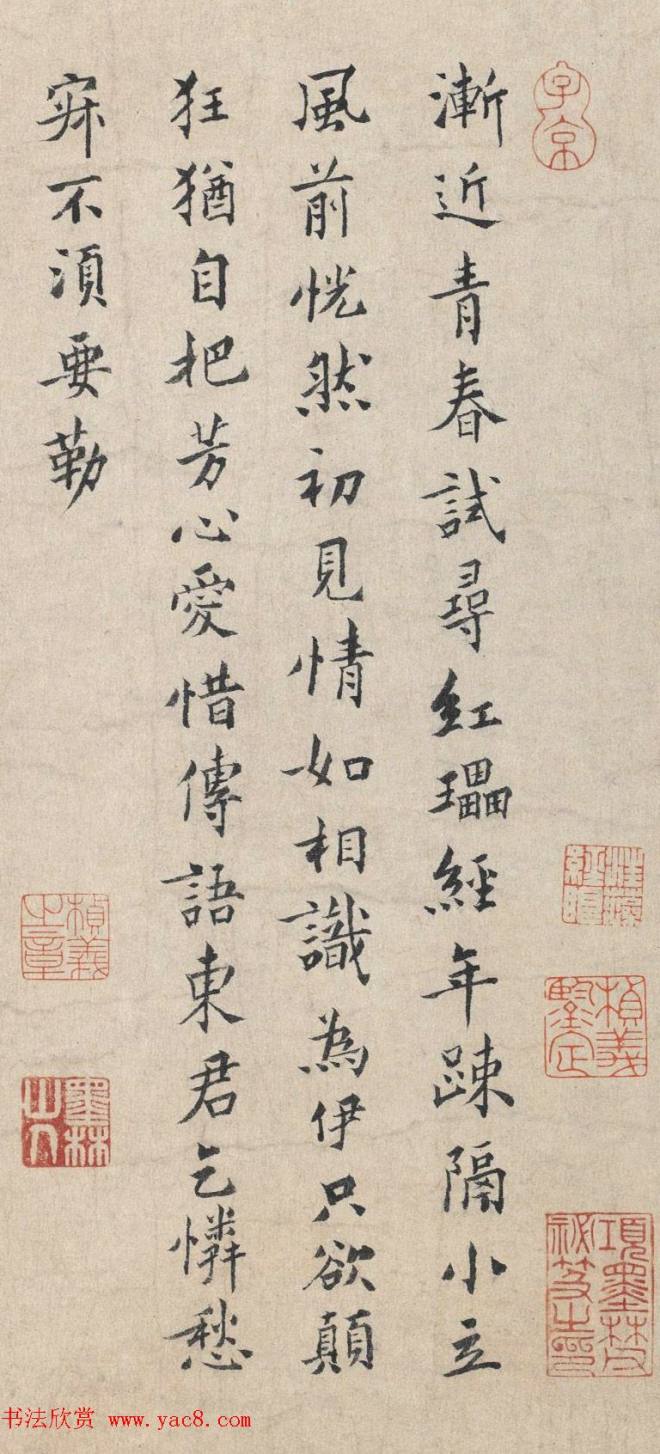 子京
漸近青春試尋紅㼖經年踈隔小立
風前恍然初見情如相識為伊只欲顛
狂猶自把芳心愛惜傳語東君乞憐愁
寂不須要勒
楨義鑒定
項墨林父祕笈之印
楨義之章
墨林山人
书法欣赏 www.yac8.com